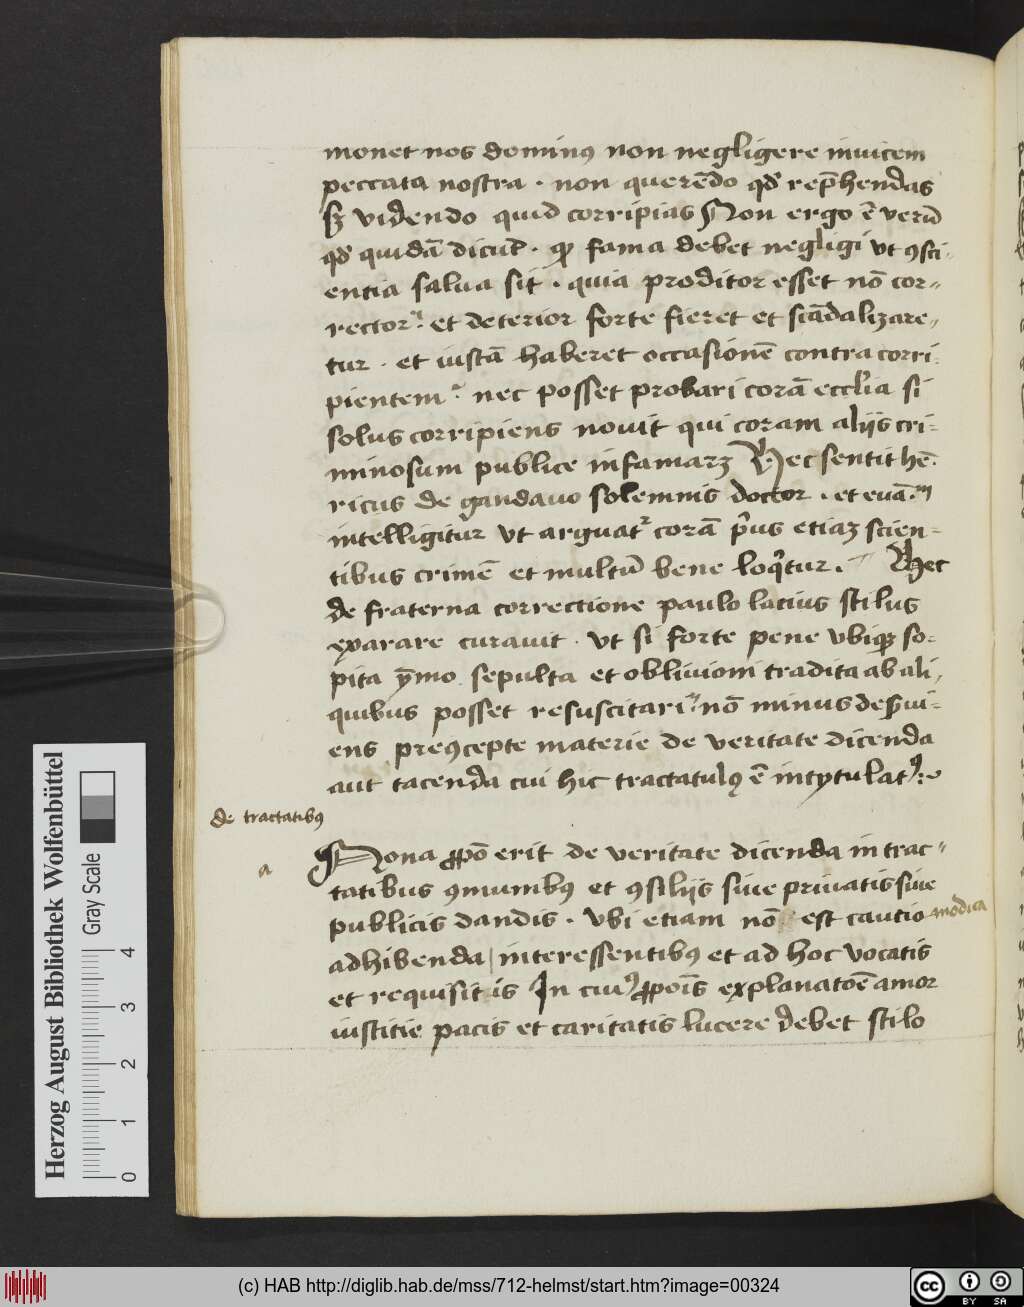 monet nos dominꝰ non negligere inuicem
peccata nostra · non querēdo qd̕ rep̄hendas
sꝫ videndo quid corripias Non ergo ē verū
qd̕ quidā dicūt · ꝙ fama debet negligi vt ꝯsci-
entia salua sit · quia proditor esset nō cor-
rector · et deterior forte fieret et scādalizare-
tur · et iustā haberet occasionē contra corri-
pientem nec posset probari corā eccl̕ia si
solus corripiens nouit qui coram aliis cri-
minosum publice infamarꝫ Hec sentit hē-
ricus de gandauo solemnis doctor · et euā.ᵐ
intelligitur vt arguatᷣ corā p̕us etiaꝫ scien-
tibus crimē et multū bene loqᷓtur · Hec
de fraterna correctione paulo lacius stilus
exarare curauit · vt si forte pene vbiqꝫ so-
pita ȳmo sepulta et obliuioni tradita ab ali-
quibus posset resuscitari nō minus des̕ui-
ens preꝯcepte materie de veritate dicenda
aut tacenda cui hic tractatulꝰ ē intytulatꝰ
de tractatibꝰ
a
Nona ꝓpō erit de veritate dicenda in trac-
tatibus ꝯmunibꝰ et ꝯsiliis siue priuatis siue
publicis dandis · vbi etiam nō est cautio modica
adhibenda interessentibꝰ et ad hoc vocatis
et requisitis In cuiꝰ ꝓpōis explanatōe amor
iusticie pacis et caritatis lucere debet stilo
Herzog August Bibliothek Wolfenbüttel
Gray Scale
0 1 2 3 4
(c) HAB http://diglib.hab.de/mss/712-helmst/start.htm?image=00324
cc BY SA